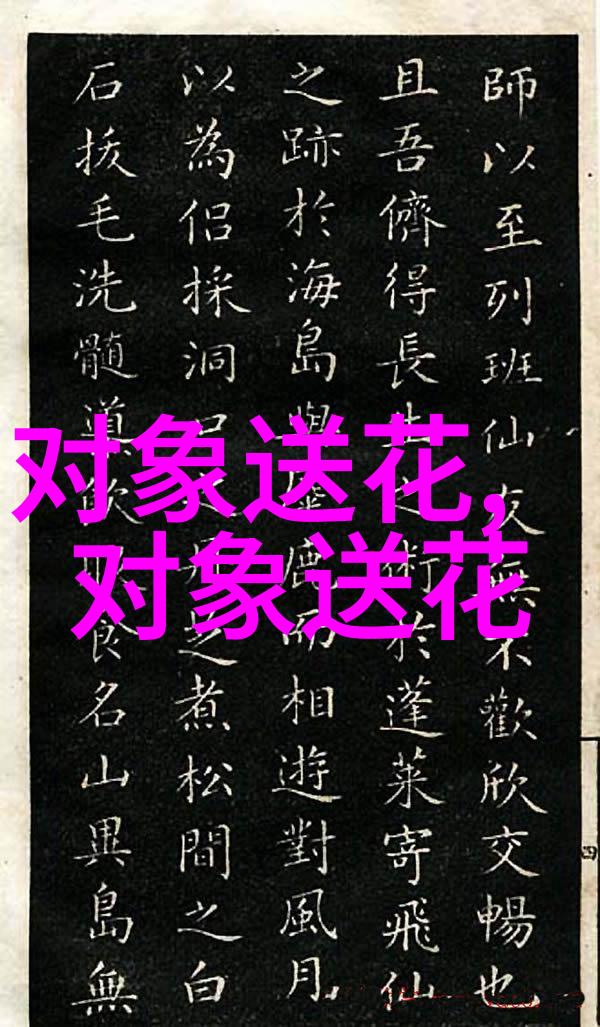 对象送花,
对象送花
師以至列班仙友無不歡欣交暢也
且吾儕得長生之術於蓬萊寄飛仙
之跡於海島與鹿而相遊對風月
以為侶採洞口丹之煮松間之白
石拔毛洗髓飲食名山異島無
四